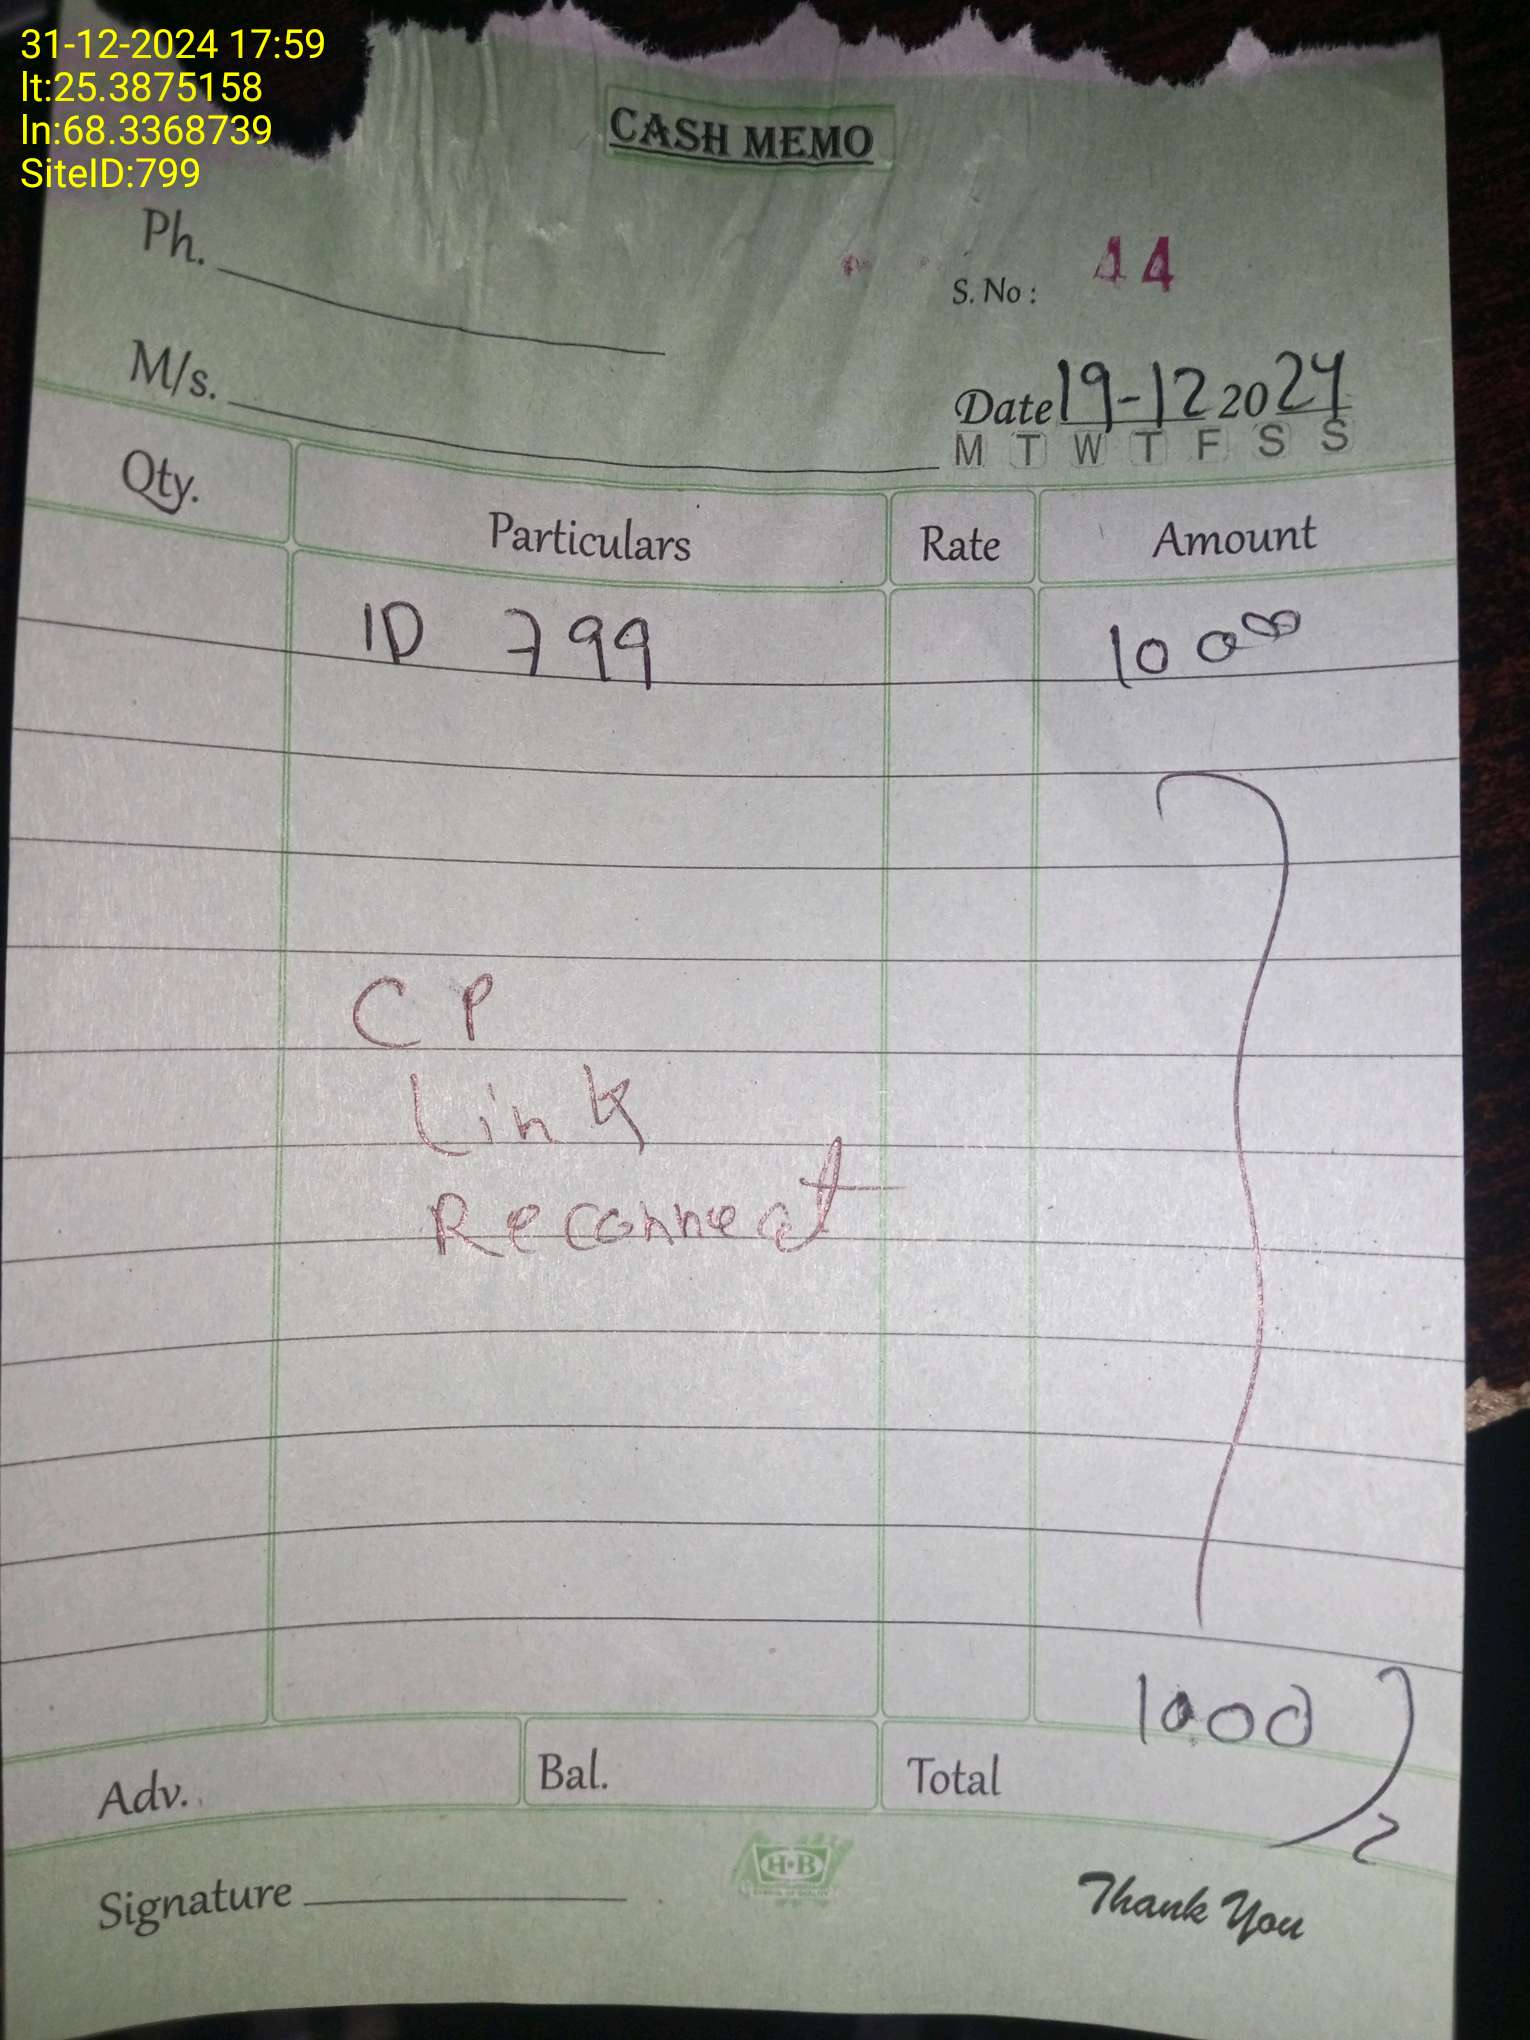 31-12-2024 17:59
lt:25.3875158
ln:68.3368739
SiteID:799
CASH MEMO
Ph.
S. No : 44
M/s.
Date 19-12 2024
M T W T F S S
Qty. Particulars Rate Amount
ID 799 1000
CP
Link
Reconnect
1000
Adv. Bal. Total
H·B
Signature
Thank You